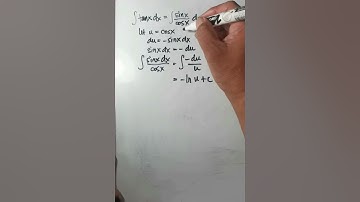 ∫ tanx dx = ∫ sinx/cosx d
let u = cosx
du = -sinx dx
sinx dx = -du
∫ sinx dx/cosx = ∫ -du/u
= -ln u + c